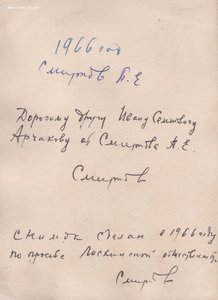 1966 год
Смиртов П.Е
Дорогому другу Ивану Семеновичу
Арчакову от Смиртова П.Е.
Смиртов
Снимок сделан в 1966 году
по просьбе Москвинской общественности
Смиртов